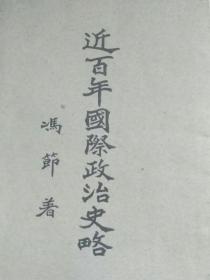 近百年國際政治史略
馮節著